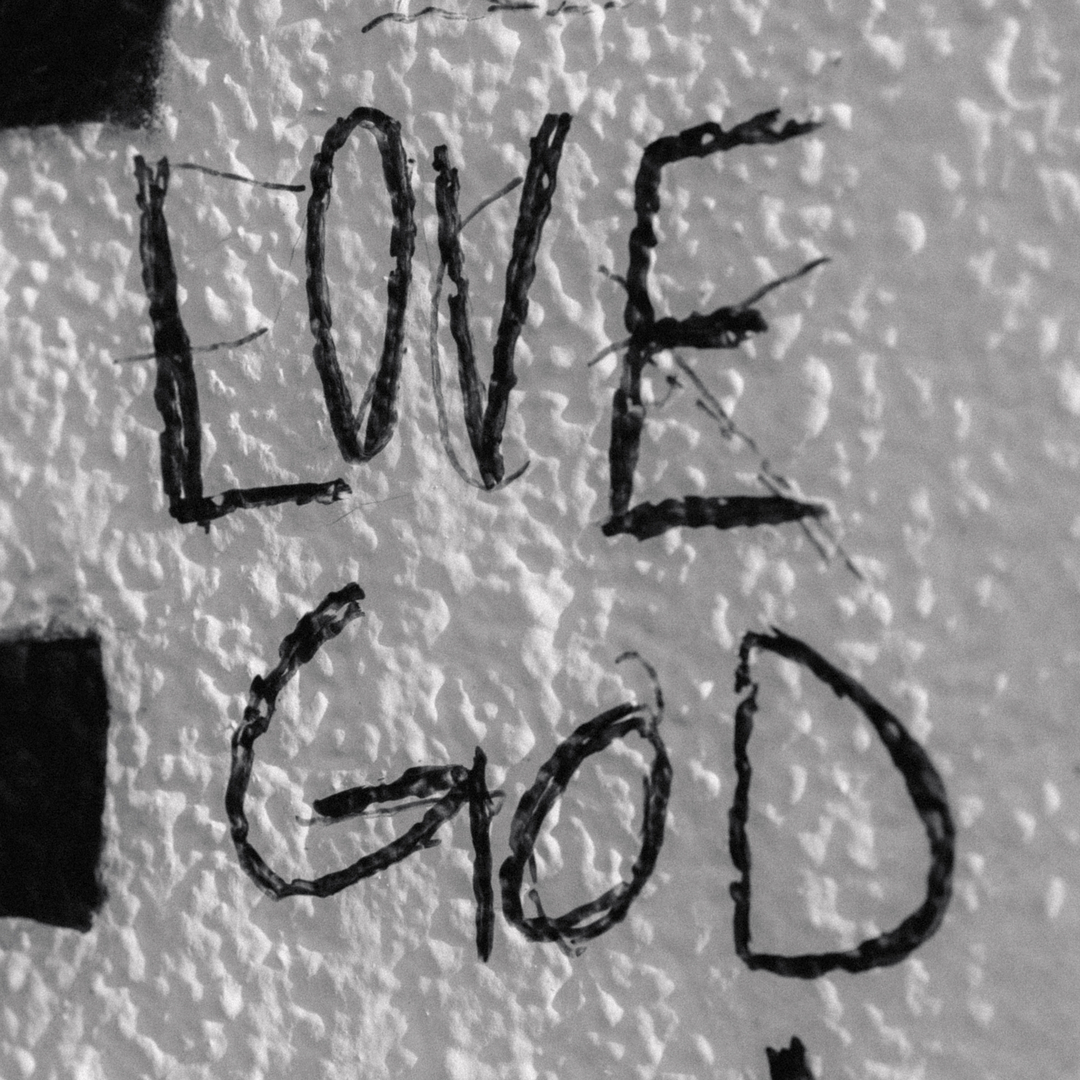 LOVE
GOD